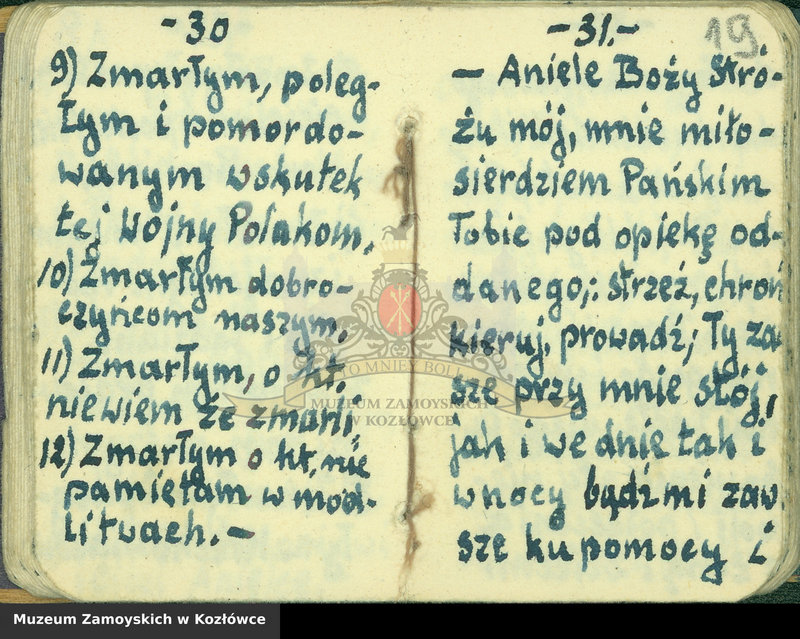 -30
9) Zmarłym, poleg-
łym i pomordo-
wanym wskutek
tej Wojny Polakom.
10) Zmarłym dobro-
czyńcom naszym.
11) Zmarłym, o kt.
niewiem że zmarli
12) Zmarłym o kt. nie
pamiętam w mod-
litwach.-
-31.-
19.
- Aniele Boży Stró-
żu mój, mnie miło-
sierdziem Pańskim
Tobie pod opiekę od-
danego,: strzeż, chroń
kieruj, prowadź; Ty za
sze przy mnie stój,
jak i we dnie tak i
w nocy bądź mi zaw
sze ku pomocy i
TO MNIEY BOLI
MUZEUM ZAMOYSKICH
W KOZŁÓWCE
Muzeum Zamoyskich w Kozłówce